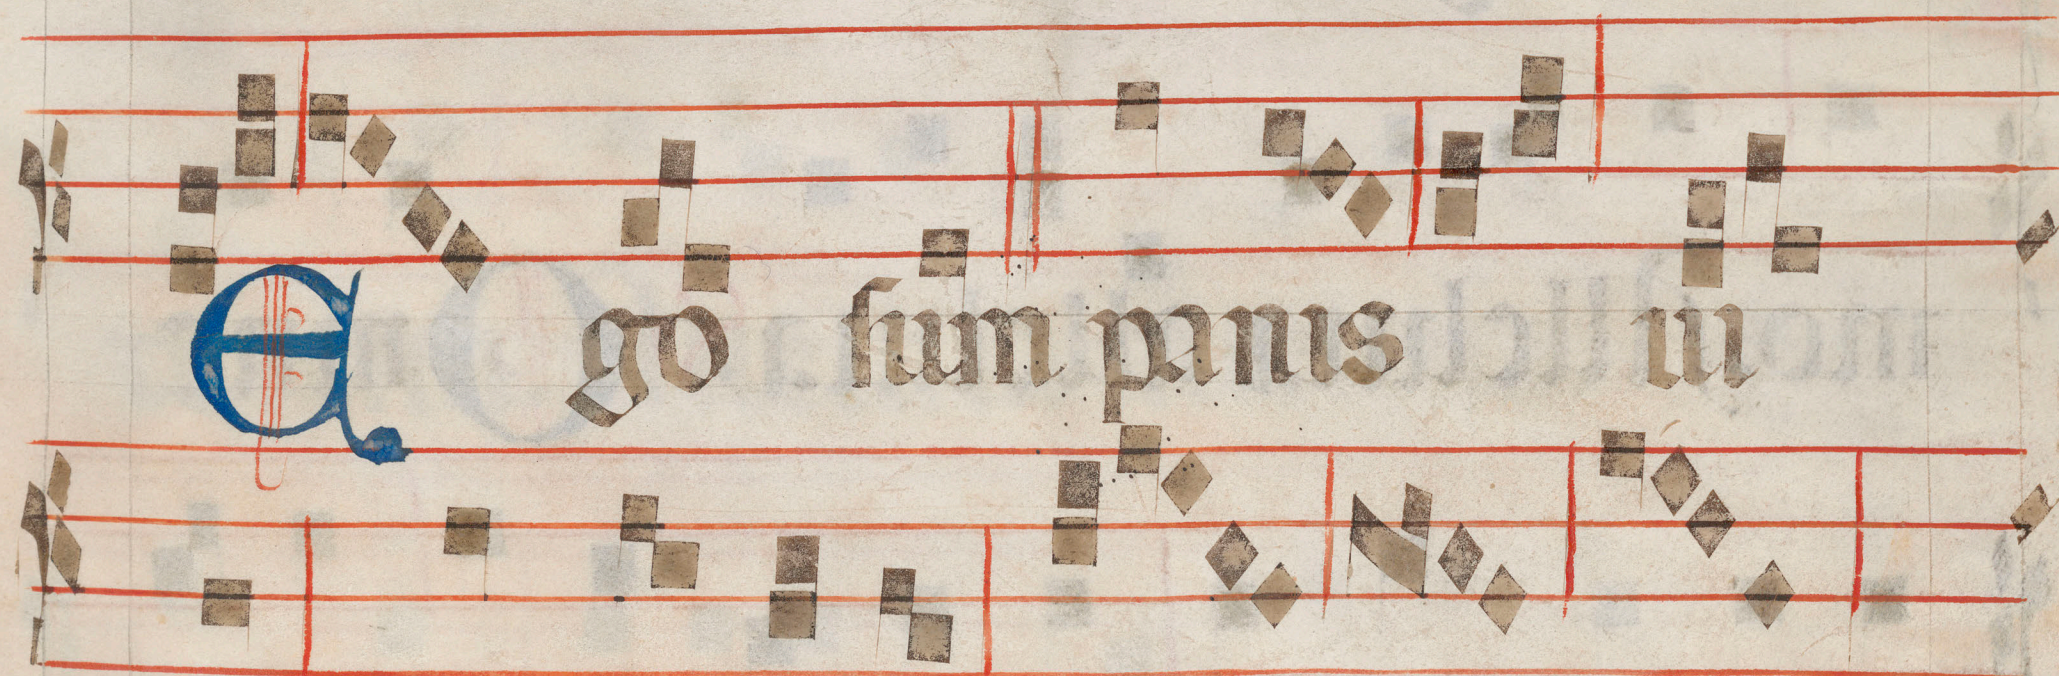 Ego sum panis ui